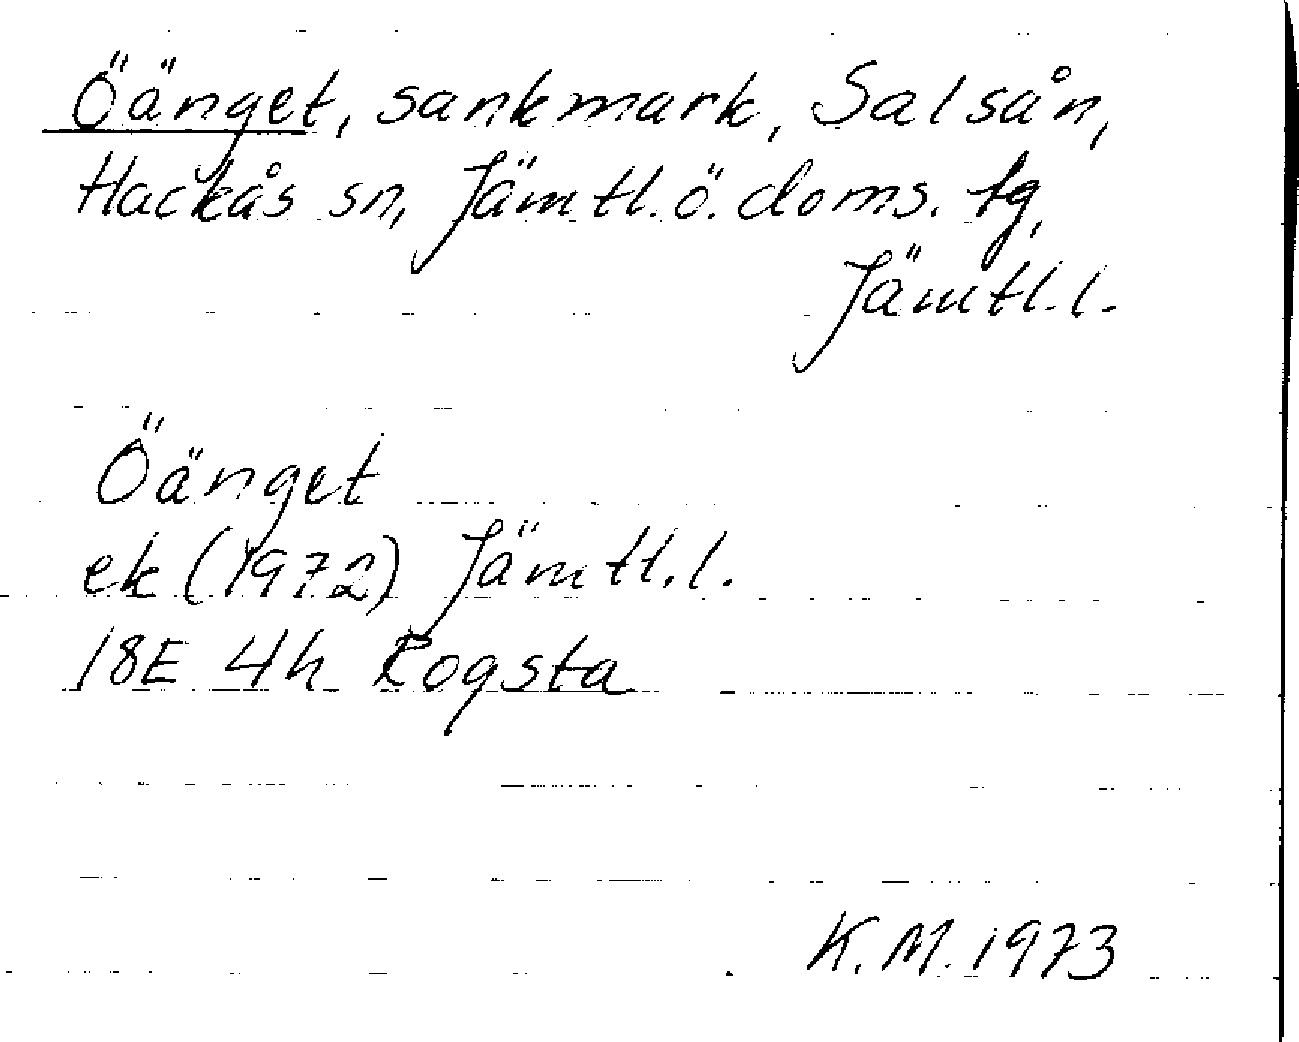 Öänget, sankmark, Salsån,
Hackås sn, Jämtl. ö. doms. tg,
Jämtl.l.
Öänget
ek (1972) Jämtl.l.
18E 4h Rogsta
K.M. 1973